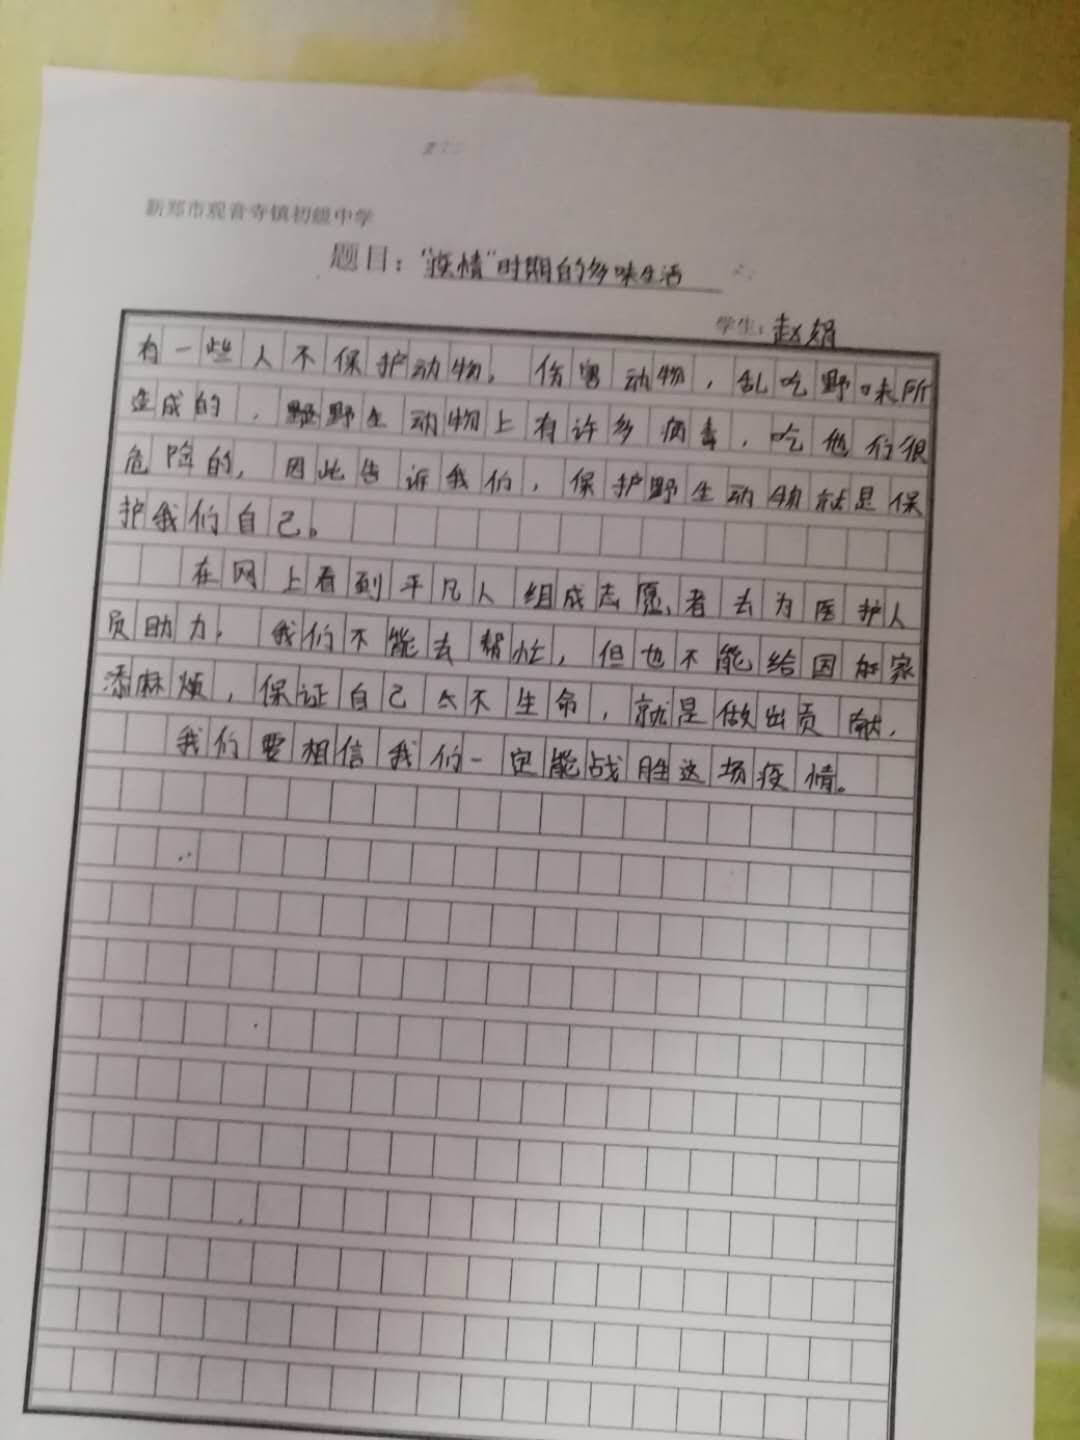 新郑市观音寺镇初级中学
题目："疫情"时期的多味生活
学生：赵娟
有一些人不保护动物。伤害动物，乱吃野味所
造成的，野生动物上有许多病毒，吃他们很
危险的，因此告诉我们，保护野生动物就是保
护我们自己。
在网上看到平凡人组成志愿者去为医护人
员助力，我们不能去帮忙，但也不能给国家
添麻烦，保证自己 生命，就是做出贡献，
我们要相信我们一定能战胜这场疫情。